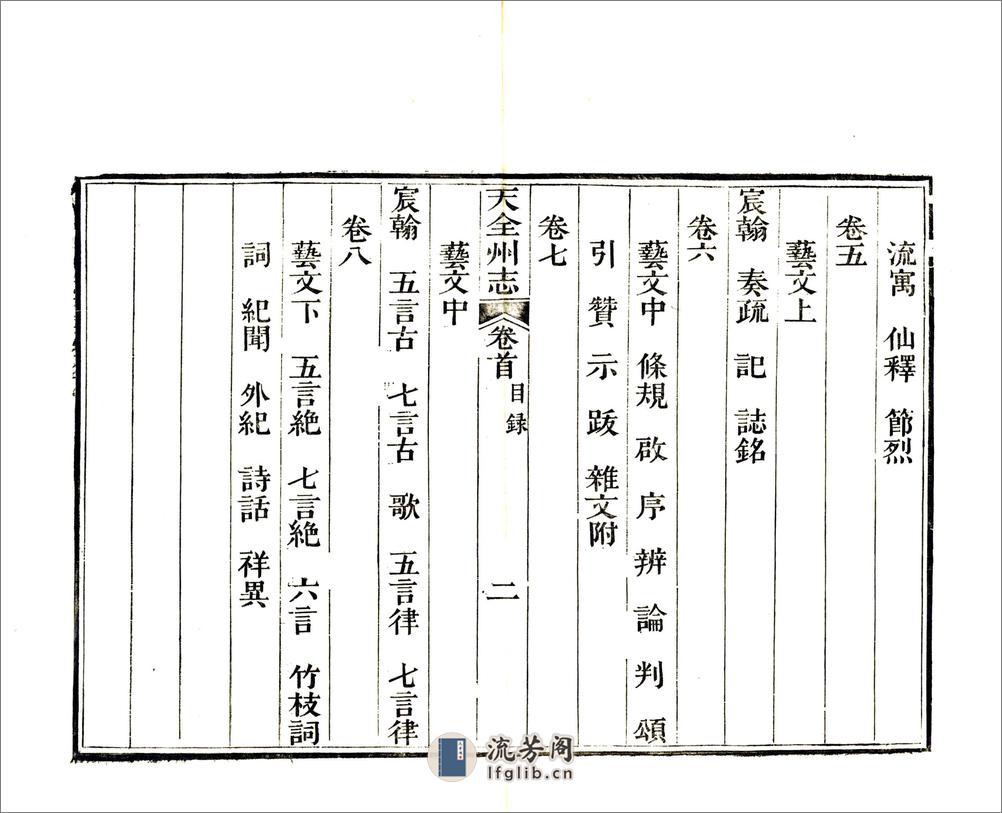 流寓 仙釋 節烈
卷五
藝文上
宸翰 奏疏 記 誌銘
卷六
藝文中 條規 啟 序 辨 論 判 頌
引 贊 示 跋 雜文附
卷七
天全州志 卷首 目録 二
藝文中
宸翰 五言古 七言古 歌 五言律 七言律
卷八
藝文下 五言絕 七言絕 六言 竹枝詞
詞 紀聞 外紀 詩話 祥異
流芳阁
lfglib.cn